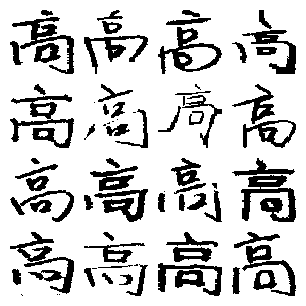 高高高高
高高高高
高高高高
高高高高